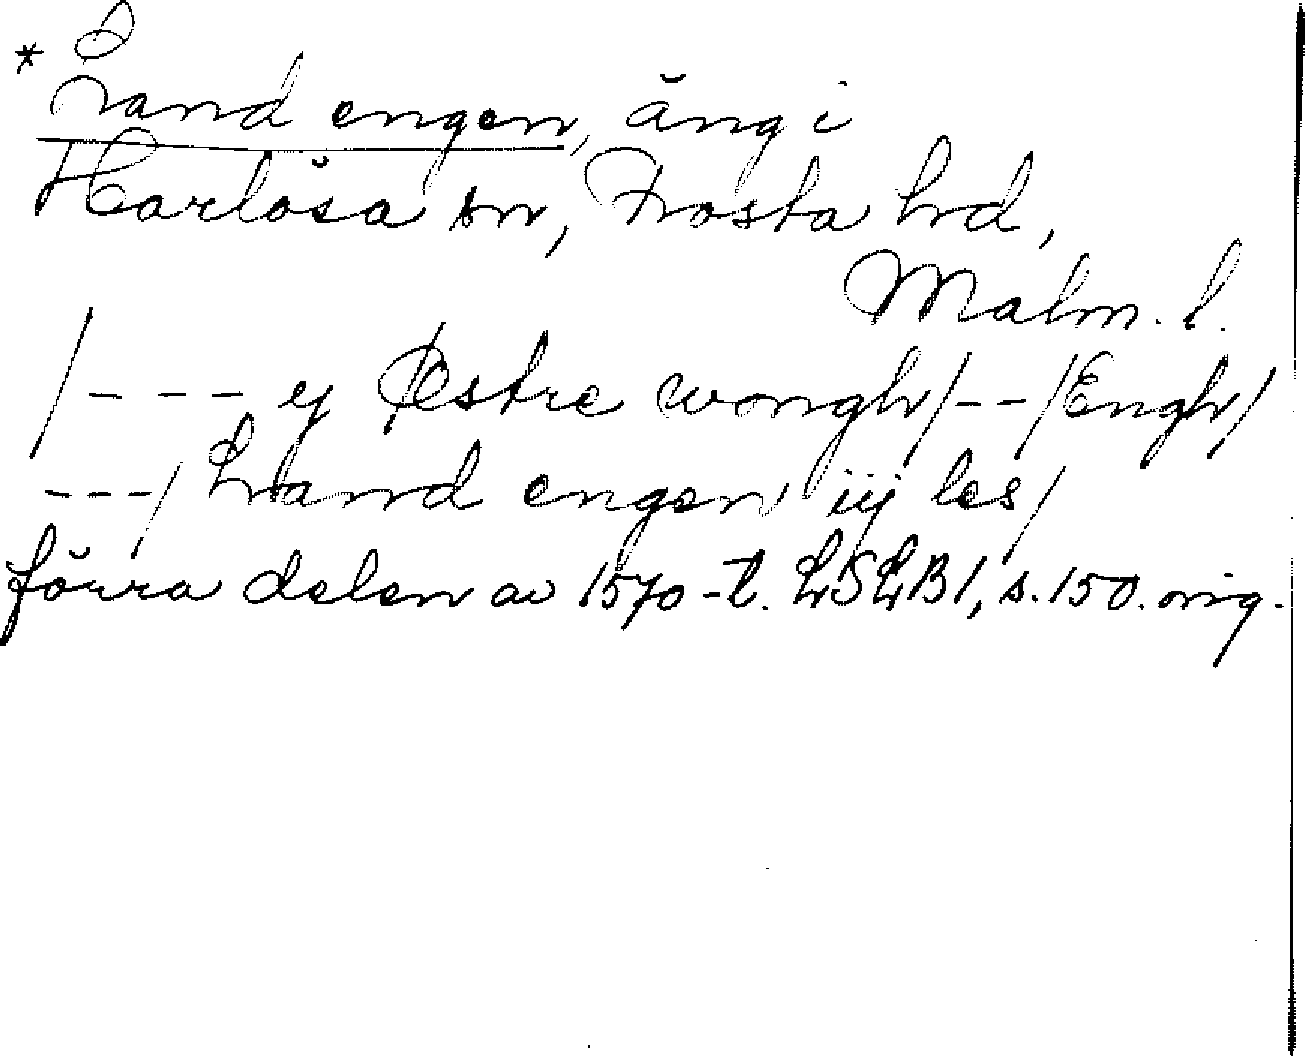 * Land engen, äng i
Harlösa sn, Frosta hd,
Malm. l.
/---- ej Østre wongh/--/Engh/
---/ Land engen iij les/
förra delen av 1570-t. LSLB1, s.150. orig.